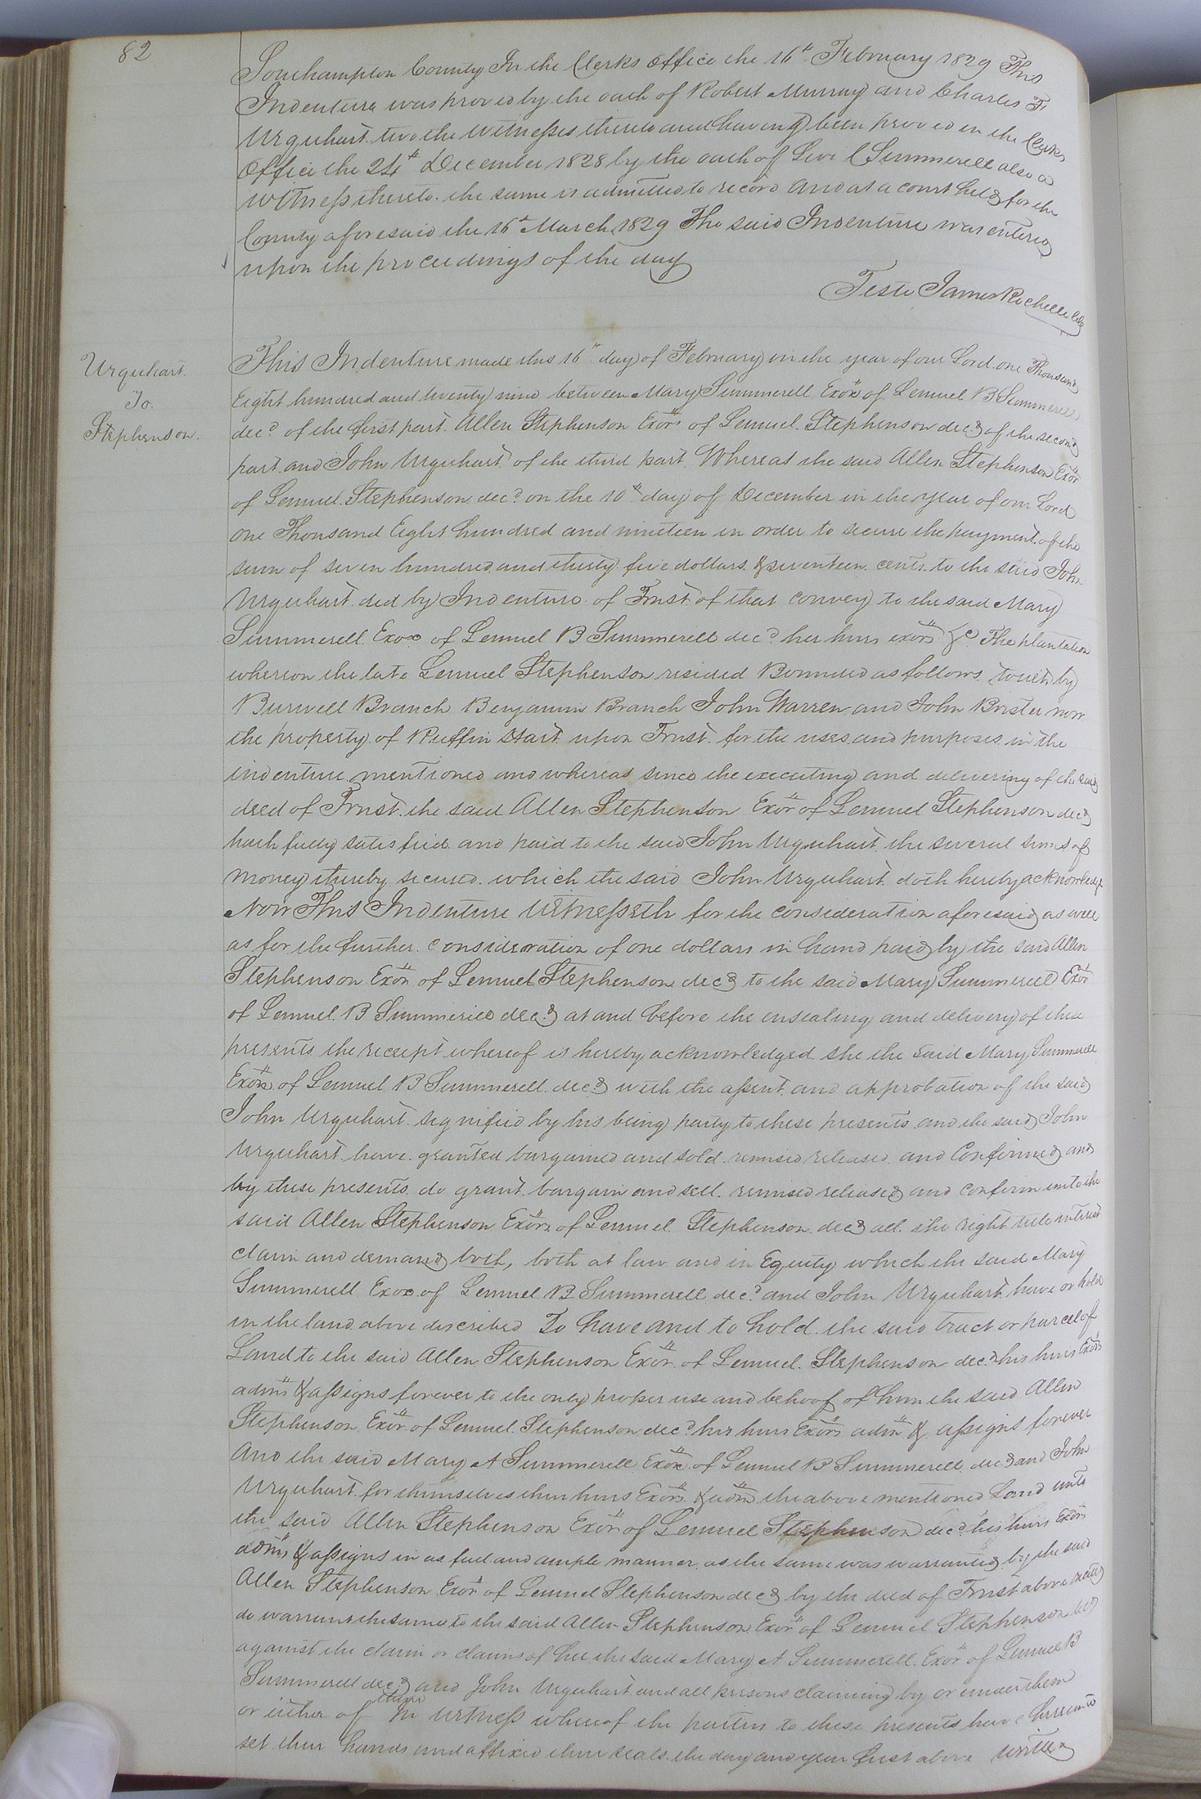 82
Southampton County In the Clerks Office the 16th February 1829 This
Indenture was proved by the oath of Robert Murray and Charles F
Urquhart two the witnesses thereto and having been proved in the Clerks
Office the 24th December 1828 by the oath of Levi C Summerell also a
witness thereto the same is admitted to record And at a court held for the
County aforesaid the 16th March 1829 The said Indenture was entered
upon the proceedings of the day
Teste James Rochelle Clk
Urquhart
To
Stephenson.
This Indenture made this 16th day of February in the year of our Lord one Thousand
Eight hundred and twenty nine between Mary Summerell Exox of Lemuel B Summerell
decd of the first part. Allen Stephenson Exor of Lemuel Stephenson decd of the second
part and John Urquhart of the third part. Whereas the said Allen Stephenson Exor
of Lemuel Stephenson decd on the 10th day of December in the year of our Lord
one Thousand Eight hundred and nineteen in order to secure the payment of the
sum of seven hundred and thirty five dollars & seventeen cents to the said John
Urquhart did by Indenture of Trust of that convey to the said Mary
Summerell Exox of Lemuel B Summerell decd her heirs exors &c The plantation
whereon the late Lemuel Stephenson resided Bounded as follows towit by
Burwell Branch Benjamin Branch John Warren and John Brister now
the property of Ruffin Hart upon Trust for the uses and purposes in the
indenture mentioned and whereas since the executing and delivering of the said
deed of Trust the said Allen Stephenson Exor of Lemuel Stephenson decd
hath fully satisfied and paid to the said John Urquhart the several sums of
money thereby secured which the said John Urquhart doth hereby acknowledge
Now This Indenture Witnesseth for the consideration aforesaid as well
as for the further consideration of one dollars in hand paid by the said Allen
Stephenson Exor of Lemuel Stephenson decd to the said Mary Summerell Exor
of Lemuel B Summerell decd at and before the ensealing and delivery of these
presents the receipt whereof is hereby acknowledged she the said Mary Summerell
Exox of Lemuel B Summerell decd with the assent and approbation of the said
John Urquhart signified by his being party to these presents and the said John
Urquhart have granted bargained and sold remised released and Confirmed and
by these presents do grant bargain and sell remised released and confirm unto the
said Allen Stephenson Exor of Lemuel Stephenson decd all the right title interest
claim and demand both, both at law and in Equity which the said Mary
Summerell Exox of Lemuel B Summerell decd and John Urquhart have or hold
in the land above described To have and to hold the said tract or parcel of
Land to the said Allen Stephenson Exor of Lemuel Stephenson decd his heirs Exors
admrs & assigns forever to the only proper use and behoof of him the said Allen
Stephenson Exor of Lemuel Stephenson decd his heirs Exors admr & assigns forever
And the said Mary A Summerell Exox of Lemuel B Summerell decd and John
Urquhart for themselves their heirs Exors & admrs the above mentioned Land unto
the said Allen Stephenson Exor of Lemuel Stephenson decd his heirs Exors
admrs & assigns in as full and ample manner as the same was warranted by the said
Allen Stephenson Exor of Lemuel Stephenson decd by the deed of Trust above recited
do warrant the same to the said Allen Stephenson Exor of Lemuel Stephenson decd
against the claim or claims of her the said Mary A Summerell Exor of Lemuel B
Summerell decd and John Urquhart and all persons claiming by or under them
or either of them In Witness whereof the parties to these presents have hereunto
set their hands and affixed their seals the day and year first above written